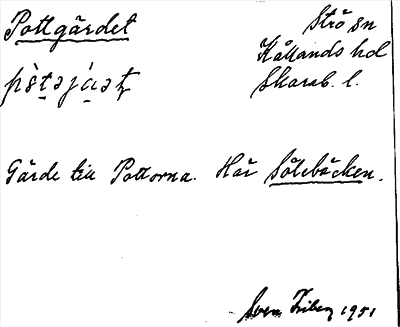 Pottgärdet
Strö sn
Kållands hd
Skarab. l.
Gärde till Pottorna. Här Sölebäcken.
Sven Friberg 1951